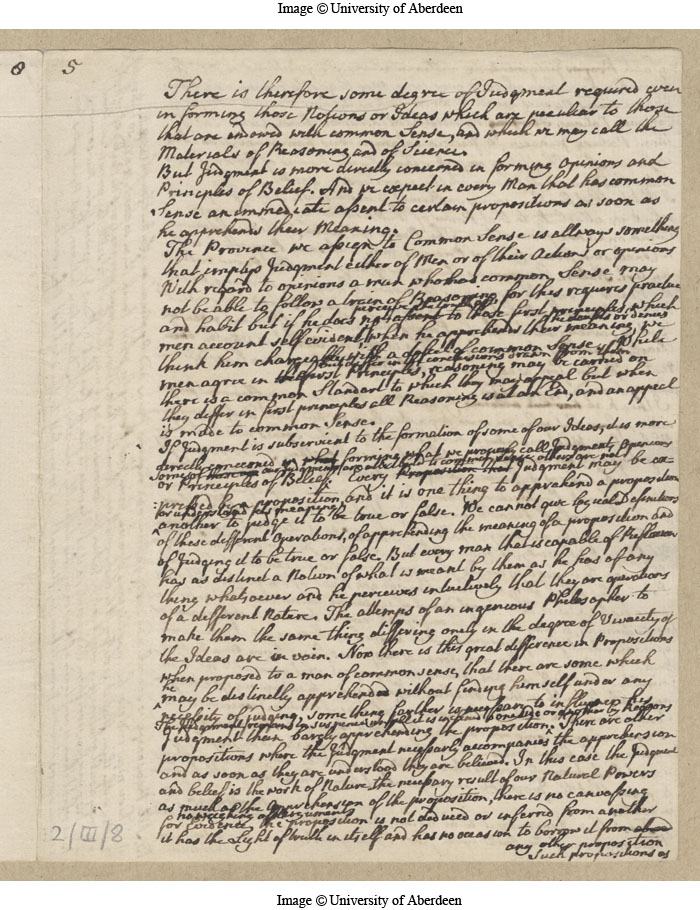 Image © University of Aberdeen
8 5
There is therefore some degree of Judgment required even
in forming those Notions or Ideas which are peculiar to those
that are endowed with common Sense, and which we may call the
Materials of Reasoning and of Science.
But Judgment is more directly concerned in forming Opinions and
Principles of Belief. And we expect in every Man that has common
Sense an immediate assent to certain propositions as soon as
he apprehends their Meaning.
The Province we assign to Common Sense is allways something
that implys Judgment either of Men or of their Actions or opinions
With regard to opinions a man who has common Sense may
not be able to follow a train of Reasoning, for this requires practice
and habit but if he does not assent to those first principles which
or denies
men account self evident, when he apprehends their meaning, we
think him chargeable with a defect of common Sense. While
but differ in the conclusions drawn from them
men agree in first Principles, reasoning may be carried on
there is a common Standart to which they may appeal but when
they differ in first principles all Reasoning is at an End, and an appeal
is made to common Sense.
If Judgment is subservient to the formation of some of our Ideas, it is more
directly concerned in forming what we properly call Judgments Opinions
Some of our Judgments are others are not
or Principles of Belief. Every Judgment may be ex-
pressed by a proposition, and it is one thing to apprehend a proposition
or understand its meaning
another to judge it to be true or false. We cannot give logical Definitions
of these different Operations, of apprehending the meaning of a proposition and
of Judging it to be true or false. But every man that is capable of Reflexion
has as distinct a Notion of what is meant by them as he has of any
thing whatsoever and he perceives intuitively that they are operations
of a different Nature. The attemps of an ingenious Philosopher to
make them the same thing differing only in the degree of Vivacity of
the Ideas are in vain. Now there is this great difference in Propositions
when proposed to a man of common sense, that there are some which
he
may be distinctly apprehended without finding himself under any
necessity of judging, some thing farther is necessary to influence his
The Judgment remains in suspence untill it is inclined to one side or another by Reasons
Judgment than barely apprehending the proposition. There are other
propositions where the Judgment necessarly accompanies the apprehension
and as soon as they are understood they are believed. In this case the Judgment
and belief is the work of Nature the necessary result of our Natural Powers
as much as the Apprehension of the proposition, there is no canvassing
no weighing of Arguments
for Evidence, the proposition is not deduced or inferred from another
it has the Light of truth in itself and has no occasion to borrow it from
any other proposition
Such propositions as
2/III/8
Image © University of Aberdeen